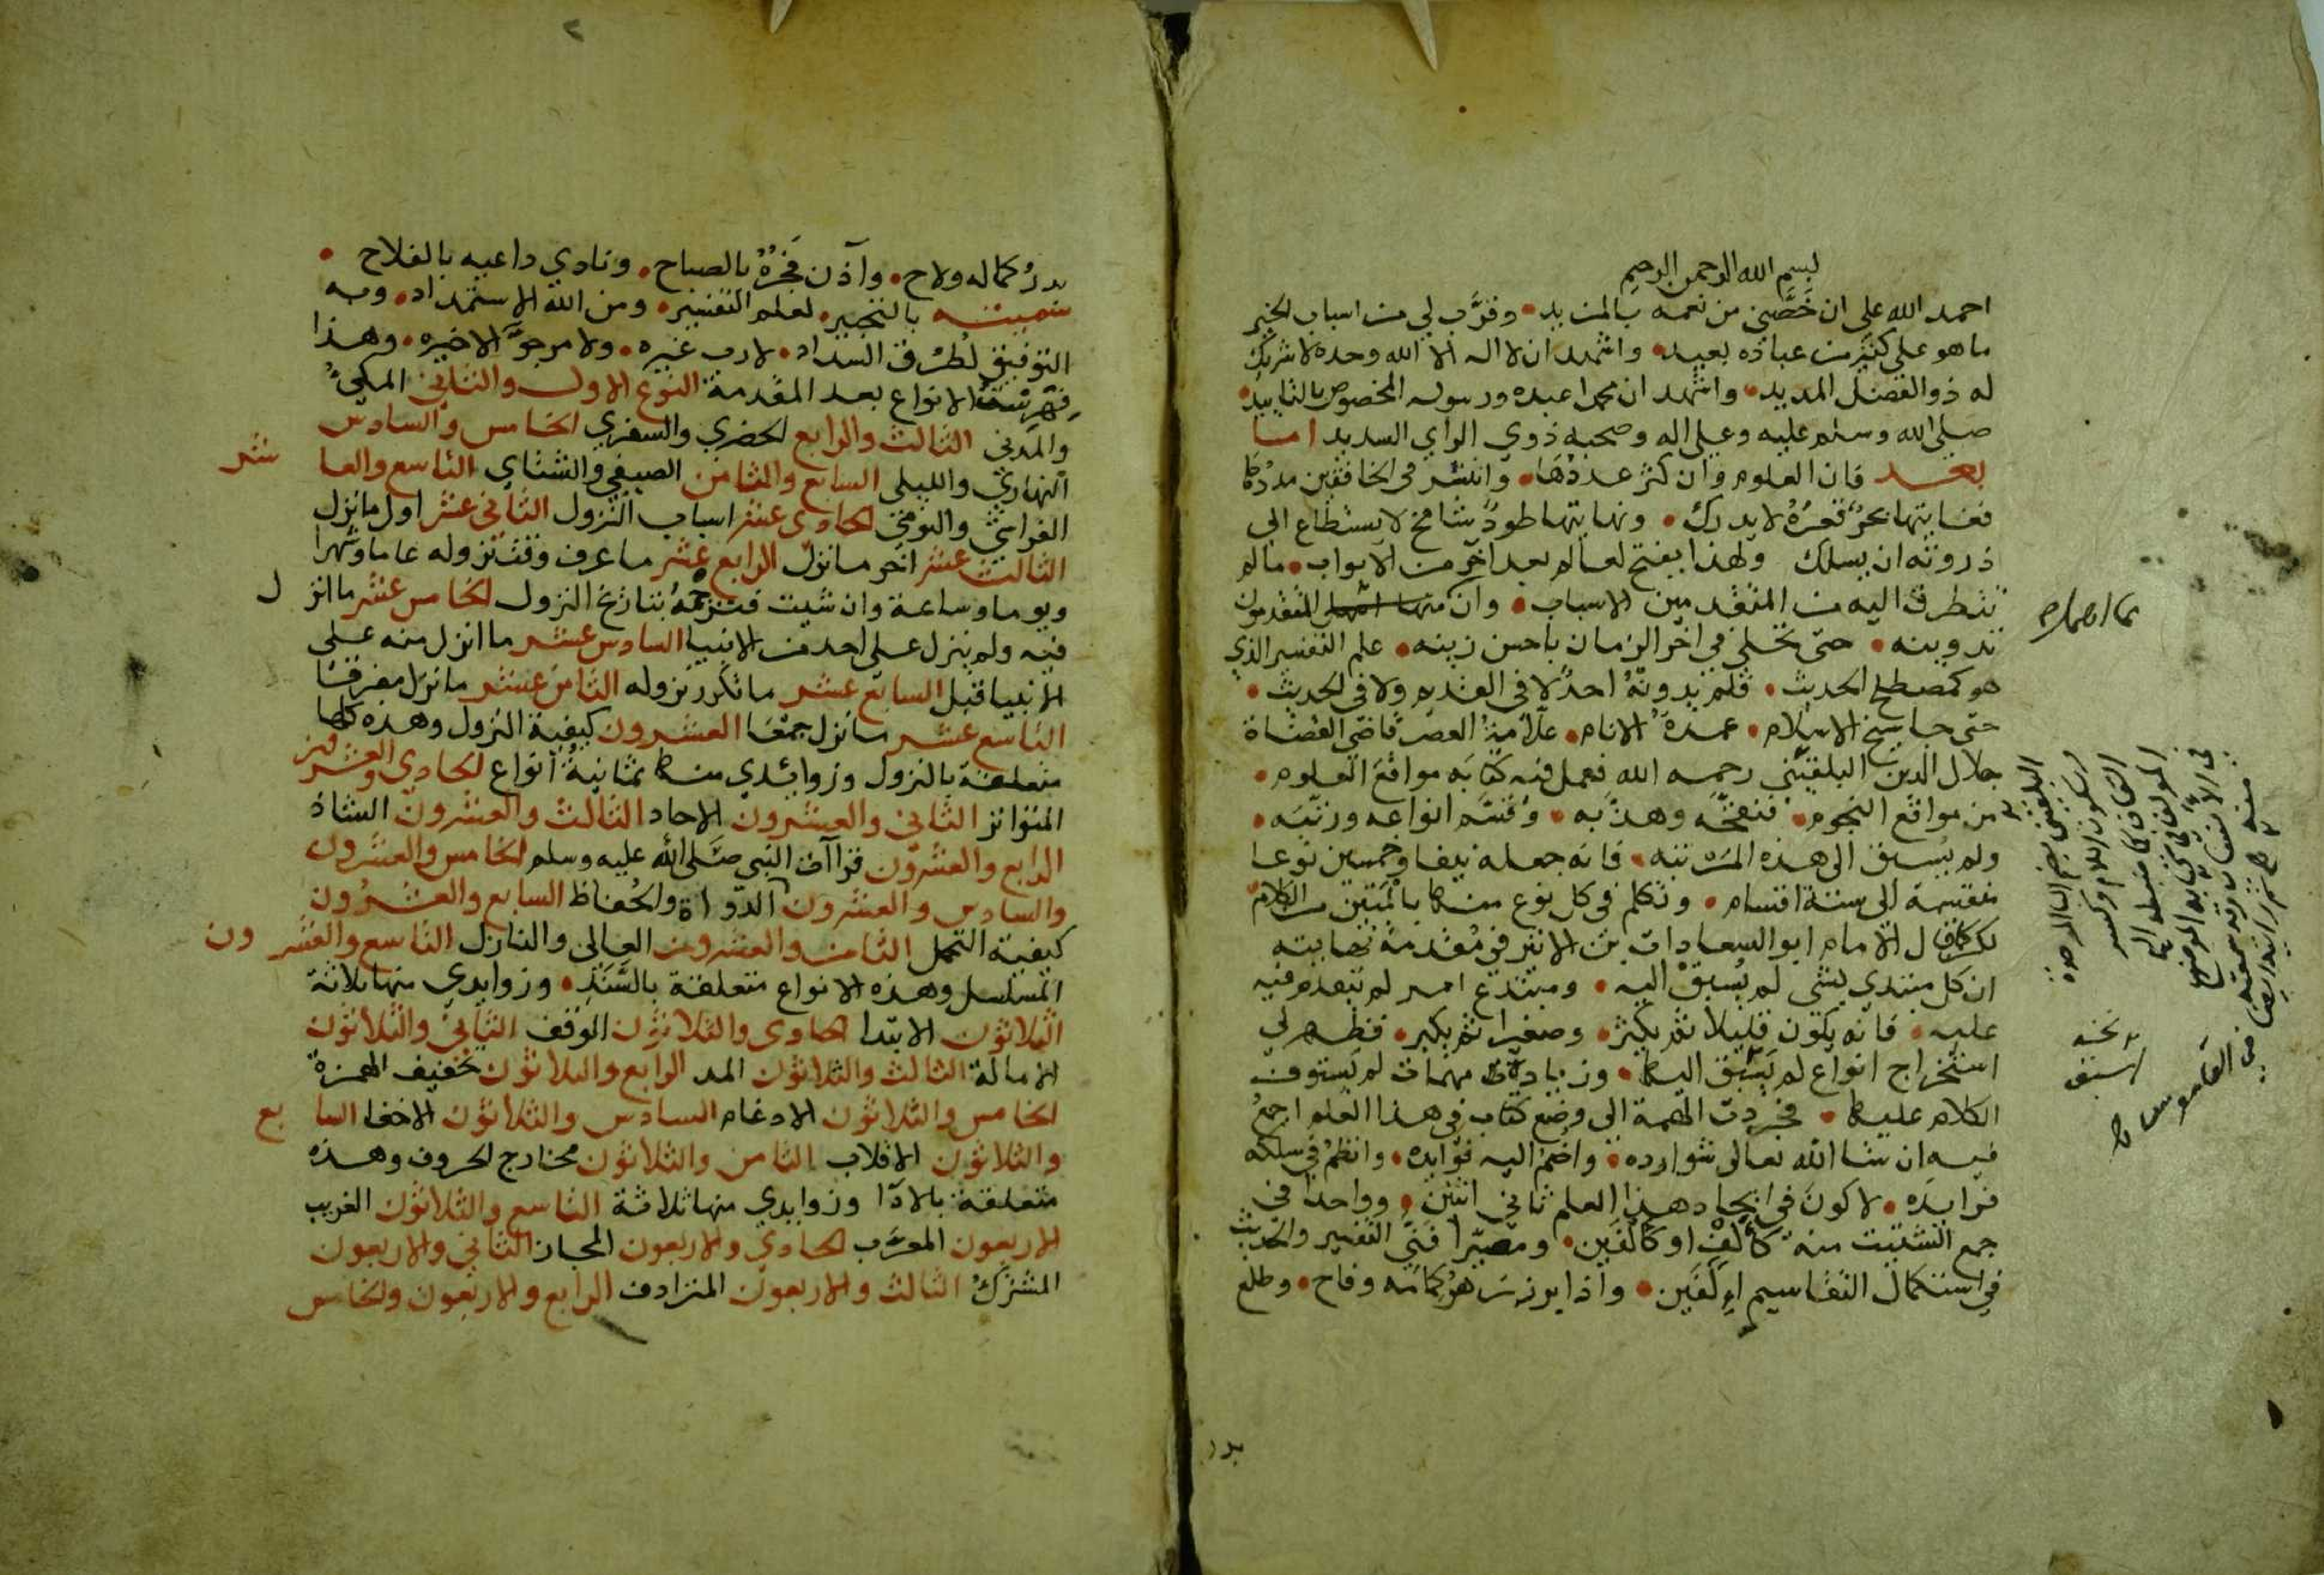 بسم الله الرحمن الرحيم
احمد الله على ان خَصَّني من نعمه بالمزيد • وقرَّب لي من اسباب الخير
ما هو على كثير من عباده بعيد • واشهد ان لا اله الا الله وحده لا شريك
له ذو الفضل المديد • واشهد ان محمدا عبده ورسوله المخصوص بالتاييد •
صلى الله وسلم عليه وعلى اله وصحبه ذوي الراي السديد اما
بعد فان العلوم وان كثر عددُها • وانتشر في الخافقين مددُها
فغايتها بحرٌ قعرُهُ لا يدرك • ونهايتها طودٌ شامخ لا يستطاع الى
ذروته ان يسلك ولهذا يفتح لعالم بعد آخر من الابواب • ما لم
يتطرق اليه من المتقدمين الاسباب • وان المتقدمون
تدوينه • حتى تحلى في اخر الزمان باحسن زينه • علم التفسير الذي
هو كمصطلح الحديث • فلم يدونْهُ احدٌ لا في القديم ولا في الحديث •
حتى جا شيخ الاسلام • عمدةُ الانام • علّامةُ العصر قاضي القضاة
جلال الدين البلقيني رحمه الله فعمل فيه كتابَه مواقع العلوم •
من مواقع النجوم • فنقحَّه وهذَّبه • وقسَّم انواعه ورتّبَه •
ولم يُسبق الى هذه المرتبه • فانه جعله نيفا وخمسين نوعا
منقسمة الى ستة اقسام • وتكلم في كل نوع منها بالمَتين من الكلام
لكن كما قال الامام ابو السعادات بن الاثير في مُقدمة نهايته
ان كل مبتدي بشي لم يُسبقْ اليه • ومبتدع امر لم يتقدم فيه
عليه • فانه يكون قليلا ثم يكثر • وصغيرا ثم يكبر • فظهر لي
استخراج انواع لم يُسْبَق اليها • وزيادة مهمات لم يَستوف
الكلام عليها • فجردت الهمة الى وضع كتاب في هذا العلم اجمعُ
فيه ان شا الله تعالى شوارده • واضُمُّ اليه فوايده • وانظمُ في سلكه
فرايدَه • لاكون في ايجاد هذا العلم ثاني اثنين • وواحدًا في
جمع الشتيت منه كألفٍ او كألفَين • ومصيّرا فَنَّي التفسير والحديث
في استكمال التقاسيم اِلفَين • واذا برز زهرُ كمامه وفاح • وطلع
بدر
البلقيني بضم البا الموحدة
وسكون اللام وكسر
بدرُ كماله ولاح • وآذن فَجرُهُ بالصباح • ونادي داعيه بالفلاح •
سميته بالتحبير • لعلم التفسير • ومن الله الاستمداد • وبه
التوفيق لطُرُق السداد • لا رب غيره • ولا مرجوَّ الا خيره • وهذا
فهرسة الانواع بعد المقدمة النوع الاول والثاني المكيُّ
والمدني الثالث والرابع الحضري والسفري الخامس والسادس
النهاري والليلي السابع والثامن الصيفي والشتاي التاسع والعا شر
الفراشي والنومي الحادي عشر اسباب النزول الثاني عشر اول ما نزل
الثالث عشر اخر ما نزل الرابع عشر ما عرف وقت نزوله عاما وشهرا
ويوما وساعة وان شيت فترجمهُ بتاريخ النزول الخامس عشر ما انز ل
فيه ولم ينزل على احد من الانبيا السادس عشر ما انزل منه على
الانبيا قبل السابع عشر ما تكرر نزوله الثامن عشر ما نزل مفرقا
التاسع عشر ما نزل جمعًا العشرون كيفية النزول وهذه كلها
متعلقة بالنزول وزوائدي منها ثمانيةُ انواع الحادي والعشرون
المتواتر الثاني والعشرون الاحاد الثالث والعشرون الشاذ
الرابع والعشرون قراآت النبي صلى الله عليه وسلم الخامس والعشرون
والسادس والعشرون الرّواة والحُفاظ السابع والعشرُون
كيفية التحمل الثامن والعشرون العالي والنازل التاسع والعشر ون
المسلسل وهذه الانواع متعلقة بالسَّنَدِ • وزوايدي منها ثلاثة
الثلاثون الابتدا الحادي والثلاثون الوقف الثاني والثلاثون
الامالة الثالث والثلاثون المد الرابع والثلاثون تخفيف الهمزة
الخامس والثلاثون الادغام السادس والثلاثون الاخفا السا بع
والثلاثون الاقلاب الثامن والثلاثون مخارج الحروف وهذه
متعلقة بالادا وزوايدي منها ثلاثة التاسع والثلاثون الغريب
الاربعون المعرَّب الحادي والاربعون المجاز الثاني والاربعون
المشتركُ الثالث والاربعون المترادف الرابع والاربعون والخامس